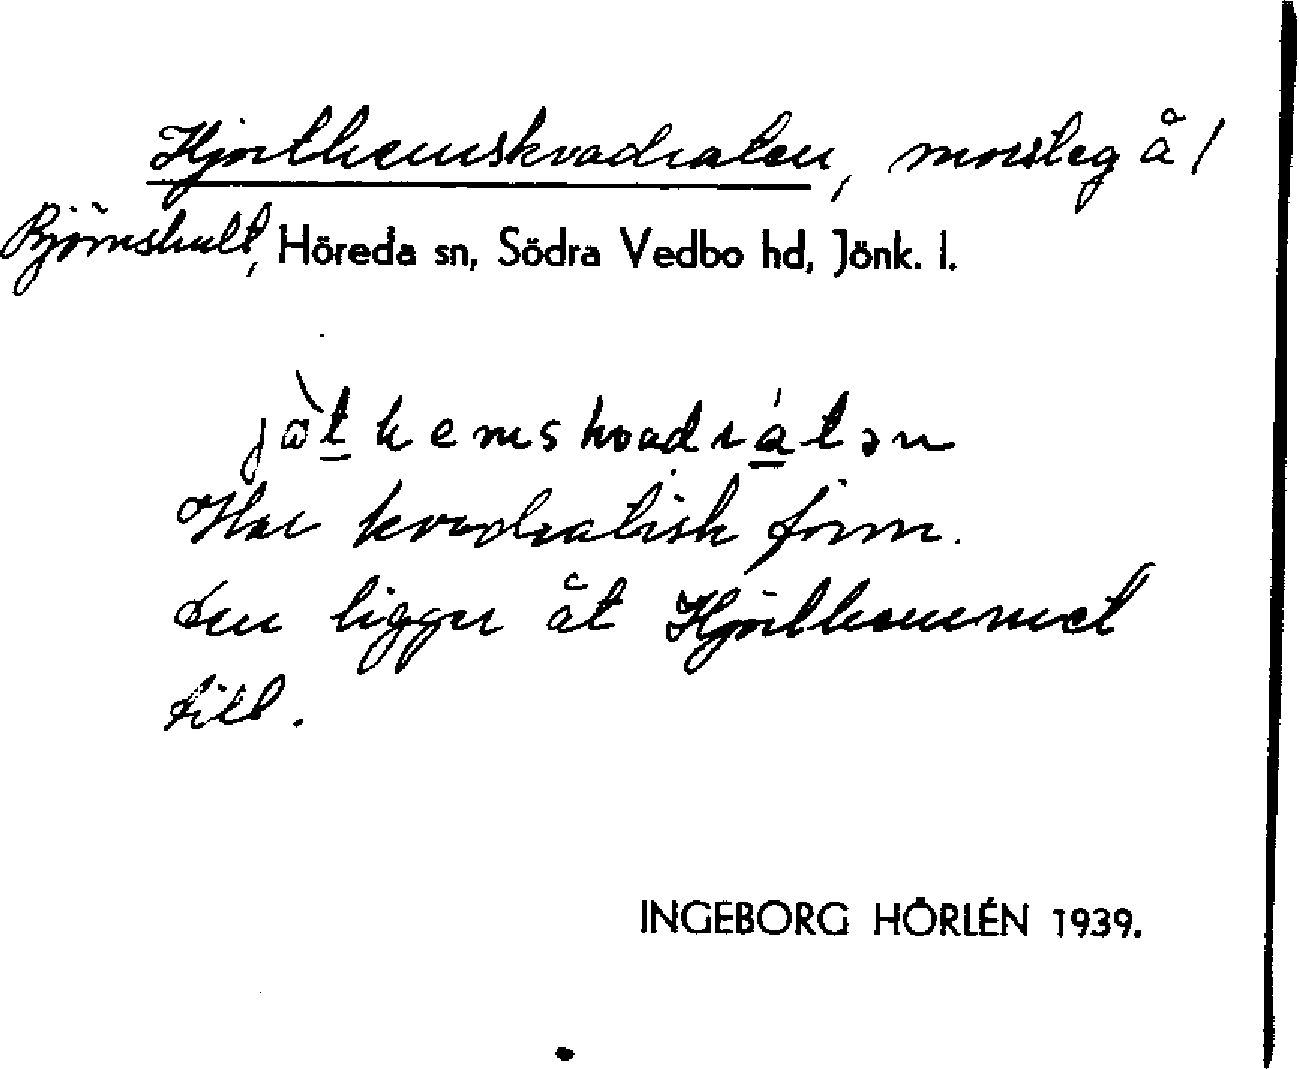 Hjorthemskvadraten, mosteg å 1
Björnshult, Höreda sn, Södra Vedbo hd, Jönk. l.
Har kvadratisk form.
Den ligger åt Hjorthemmet
till.
INGEBORG HÖRLÉN 1939.